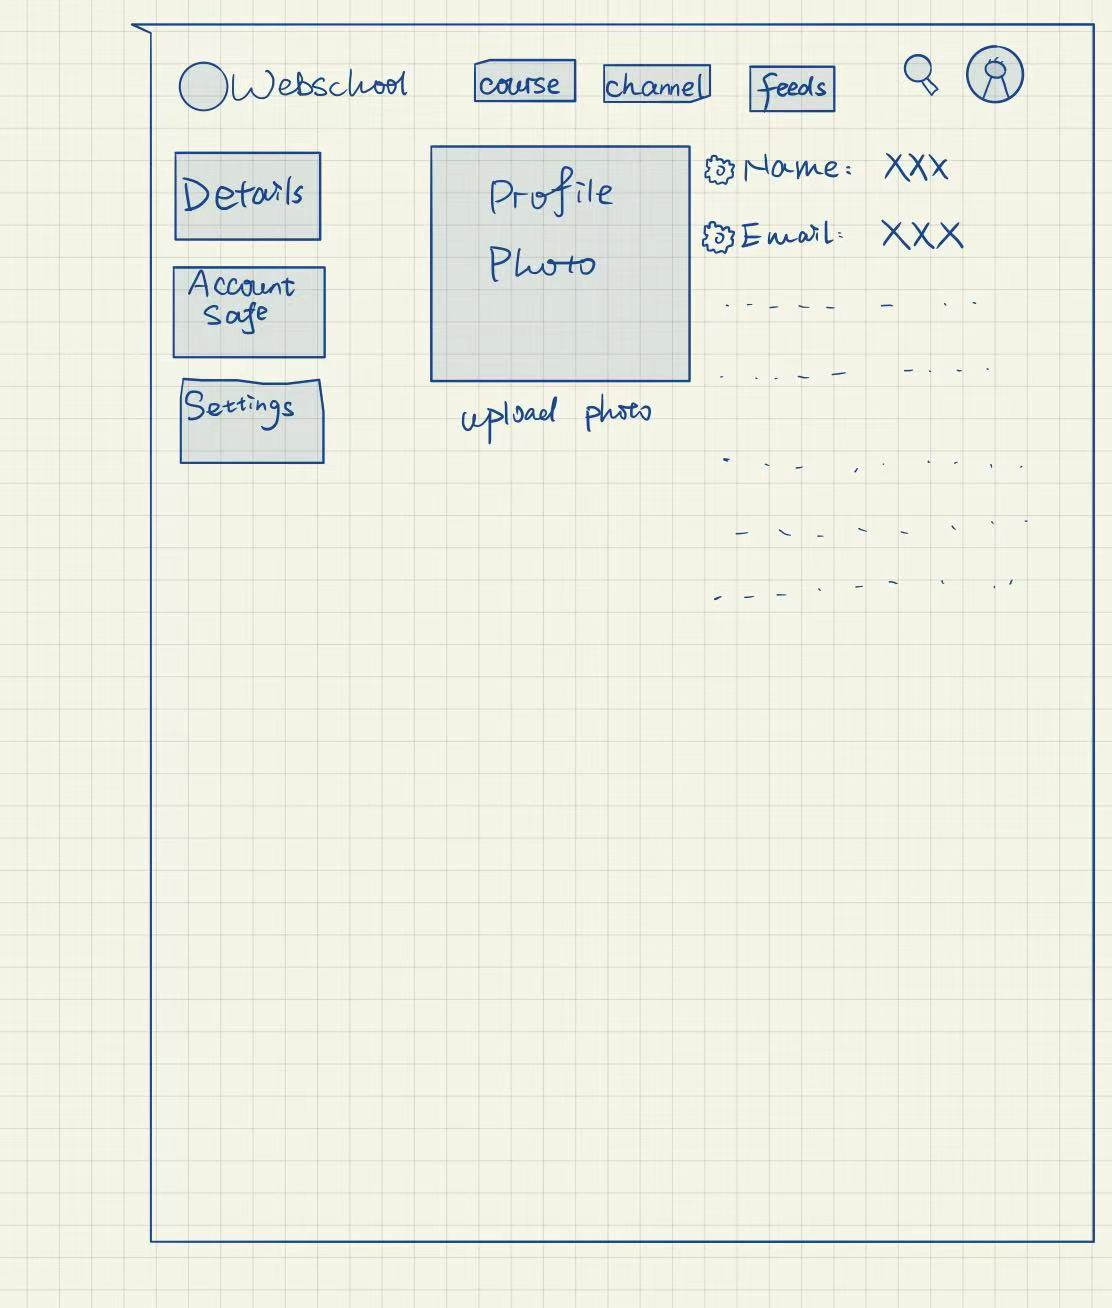 Webschool
course
channel
feeds
Details
Account
Safe
Settings
Profile
Photo
upload photo
Name: XXX
Email: XXX